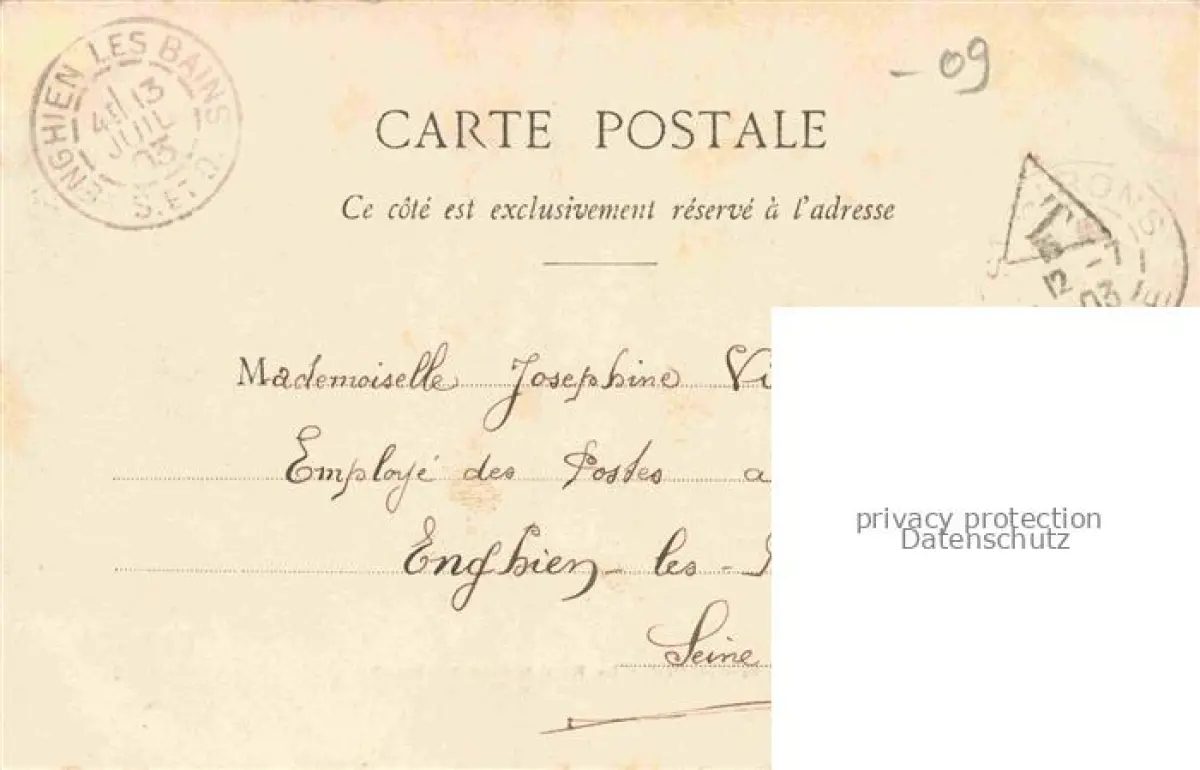 ENGHIEN LES BAINS
13
JUIL
03
S. ET O.
- 09
CARTE POSTALE
Ce côté est exclusivement réservé à l'adresse
T
12
03
Mademoiselle Josephine Vi
Employé des Postes a
Enghien - les -
Seine
privacy protection
Datenschutz